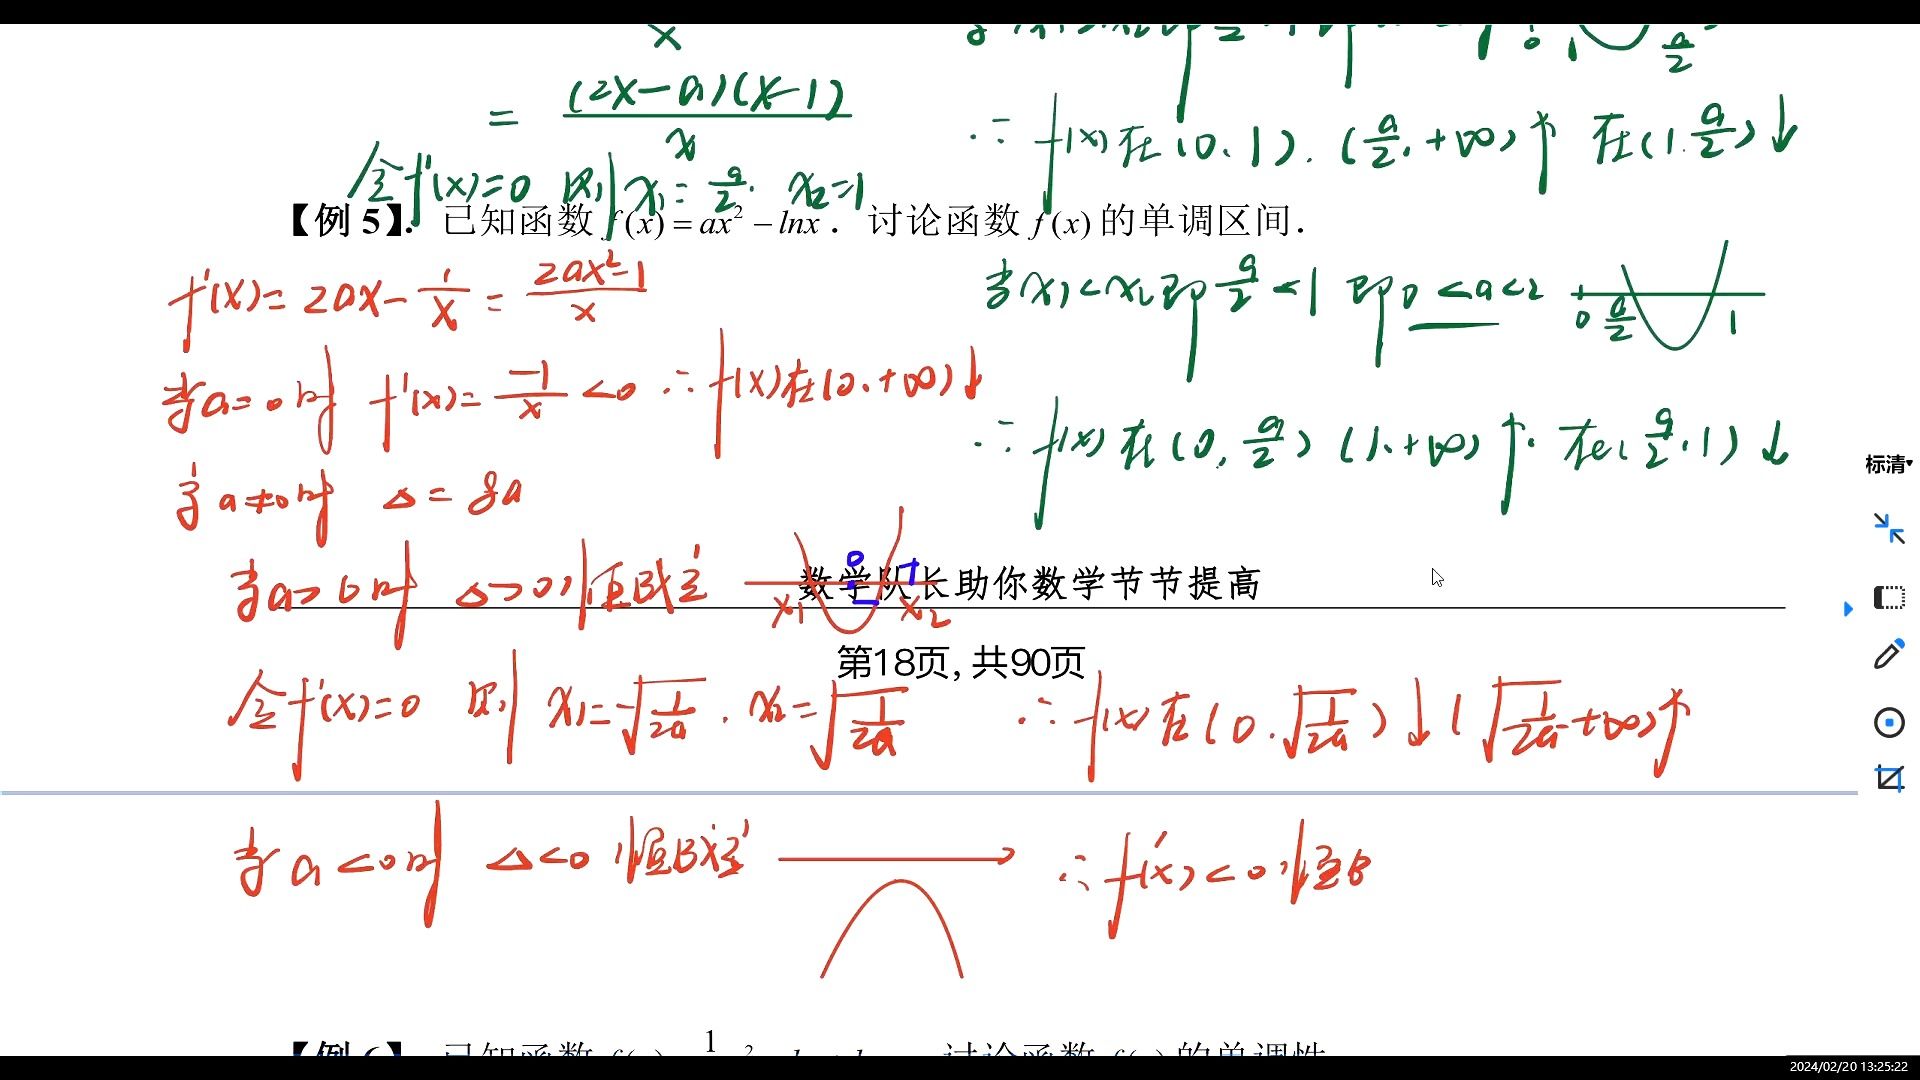 x
= (2x-a)(x-1)/x
令f'(x)=0 则 x₁=a/2. x₂=1
∴ f(x)在(0,1).(a/2,+∞)↑ 在(1,a/2)↓
【例 5】. 已知函数 f(x) = ax² − lnx . 讨论函数 f(x) 的单调区间.
f'(x)= 2ax - 1/x = (2ax²-1)/x
当x₁<x₂即 a/2 <1 即0<a<2
0 a/2 1
当a=0时 f'(x)= -1/x <0 ∴ f(x)在(0,+∞)↓
∴ f(x)在(0,a/2) (1,+∞)↑. 在(a/2,1)↓
当a≠0时 Δ=8a
当a>0时 Δ>0恒成立
x₁ x₂ 0 - +
数学队长助你数学节节提高
第18页, 共90页
令f'(x)=0 则 x₁=-√(1/2a) . x₂=√(1/2a) ∴ f(x)在(0,√(1/2a))↓ (√(1/2a),+∞)↑
当a<0时 Δ<0恒成立 ∴ f'(x)<0恒成
标清
2024/02/20 13:25:22